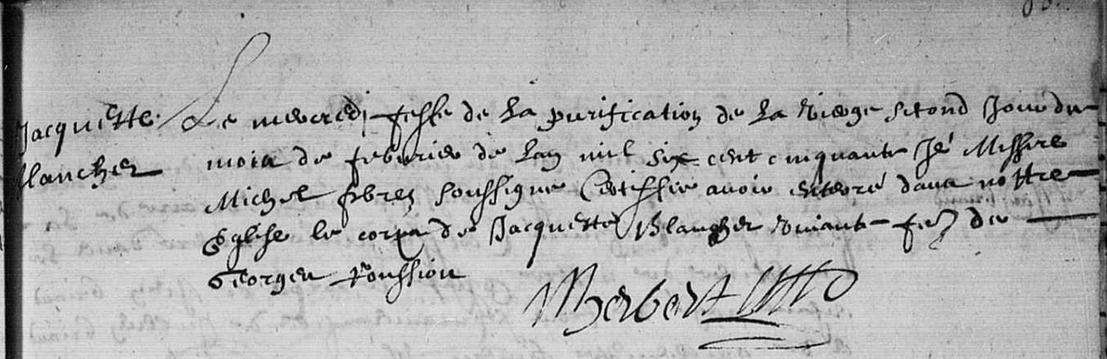 Jacquette
Blancher
Le mercredi feste de la purification de la vierge second Jour du
mois de febvrier de lan mil six cent cinquante Je Missire
Michel soussigné Certiffie avoir enterré dans nostre
Eglise le corps de Jacquette Blancher vivante fe de
Georges Roussion